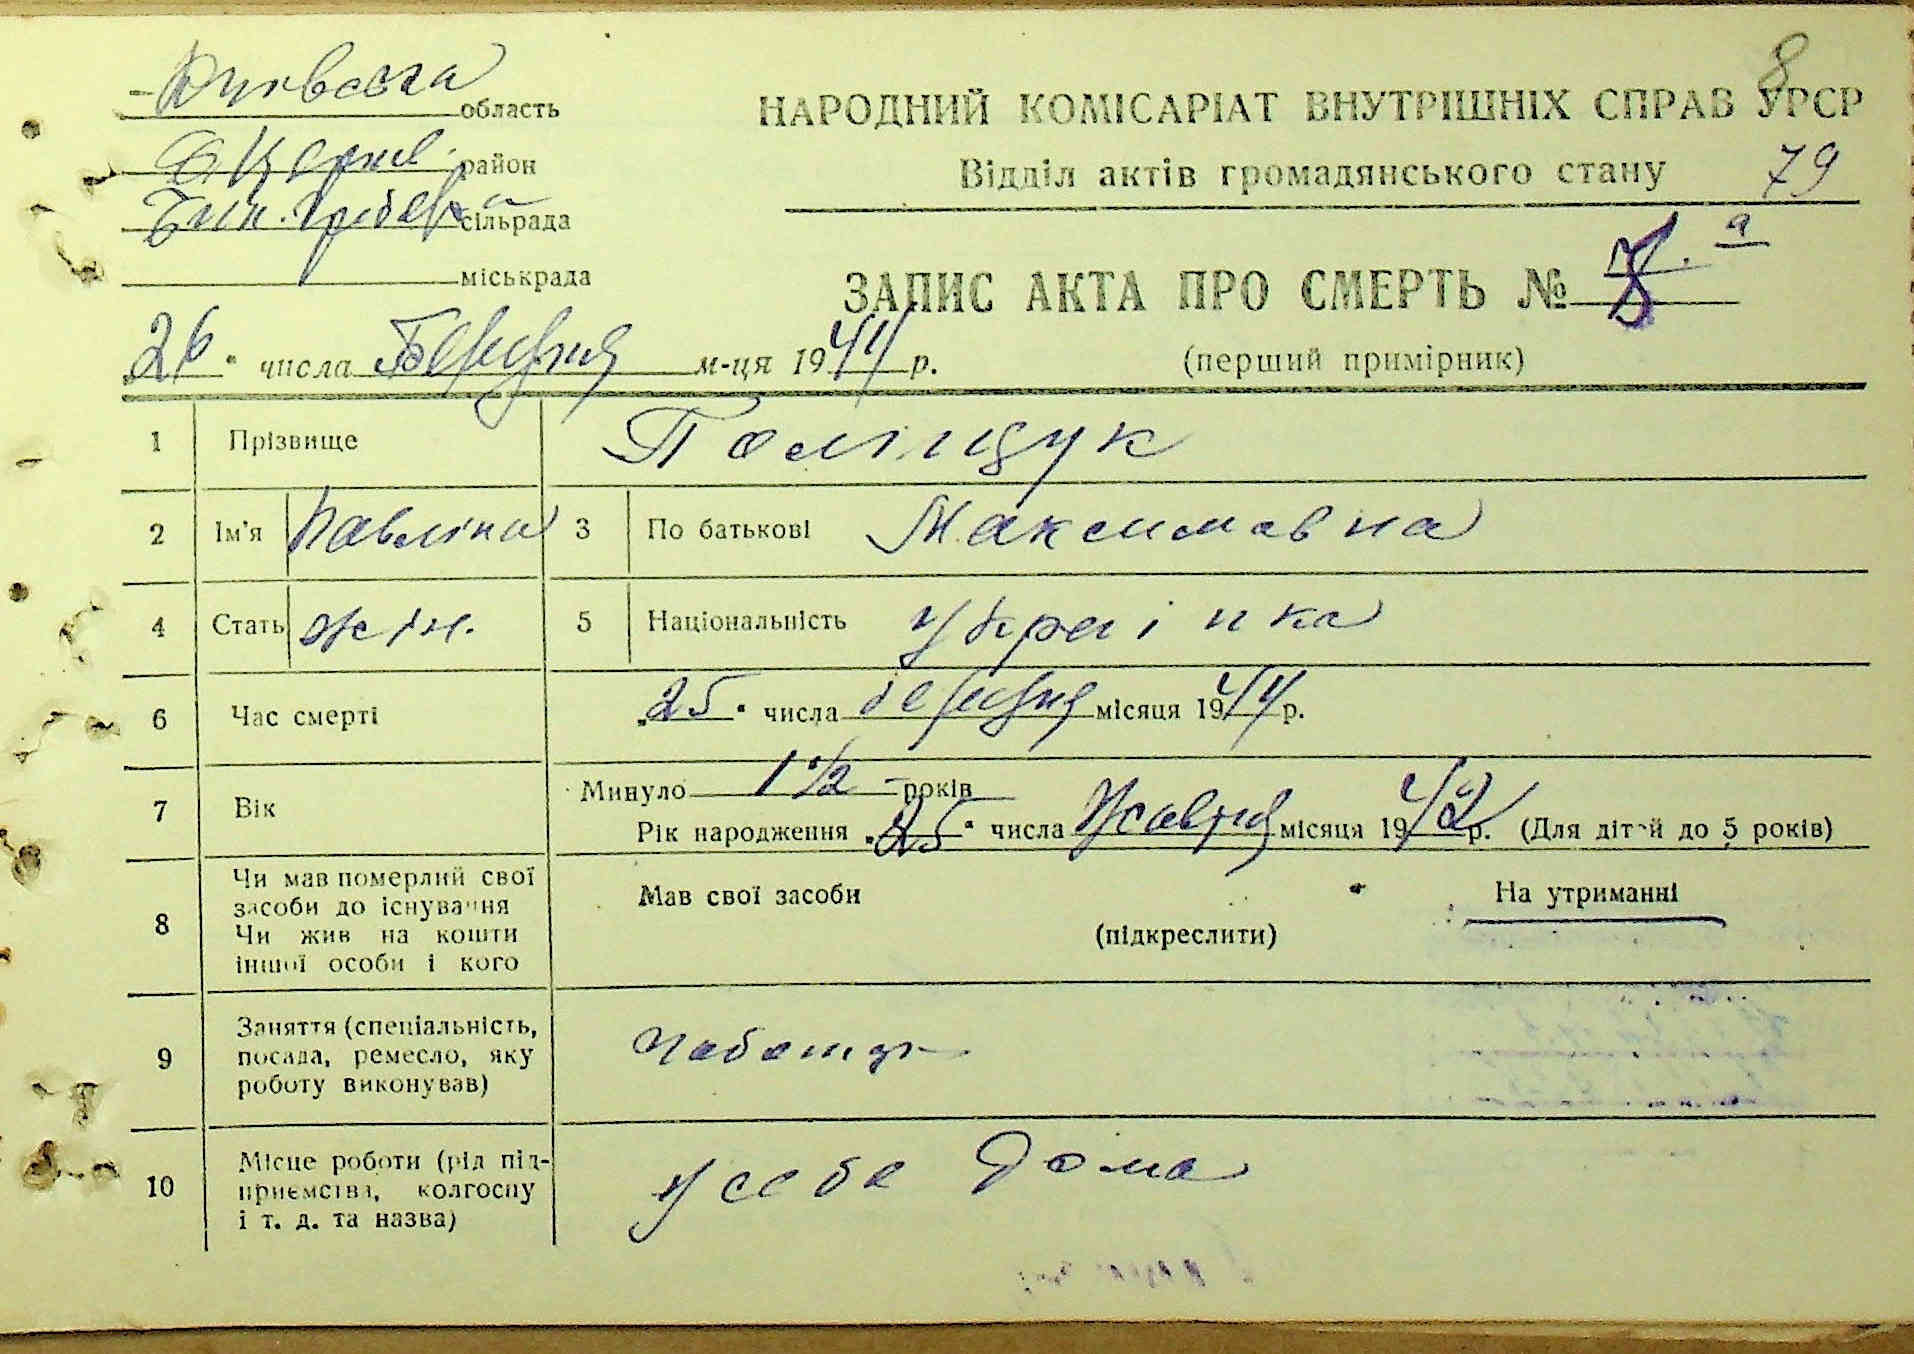 Київська область
Б Церків. район
сільрада
міськрада
8
НАРОДНИЙ КОМІСАРІАТ ВНУТРІШНІХ СПРАВ УРСР
Відділ актів громадянського стану 79
ЗАПИС АКТА ПРО СМЕРТЬ № 8 а
(перший примірник)
„26“ числа Березня м-ця 1944 р.
1 Прізвище Поліщук
2 Ім'я Павліна 3 По батькові Максимовна
4 Стать жін. 5 Національність Українка
6 Час смерті „25“ числа березня місяця 1944 р.
7 Вік Минуло 1 1/2 років
Рік народження „25“ числа Жовтня місяця 1942 р. (Для дітей до 5 років)
8 Чи мав померлий свої засоби до існування
Чи жив на кошти іншої особи і кого
Мав свої засоби На утриманні
(підкреслити)
9 Заняття (спеціальність, посада, ремесло, яку роботу виконував)
10 Місце роботи (рід підприємства, колгоспу і т. д. та назва) У себе дома